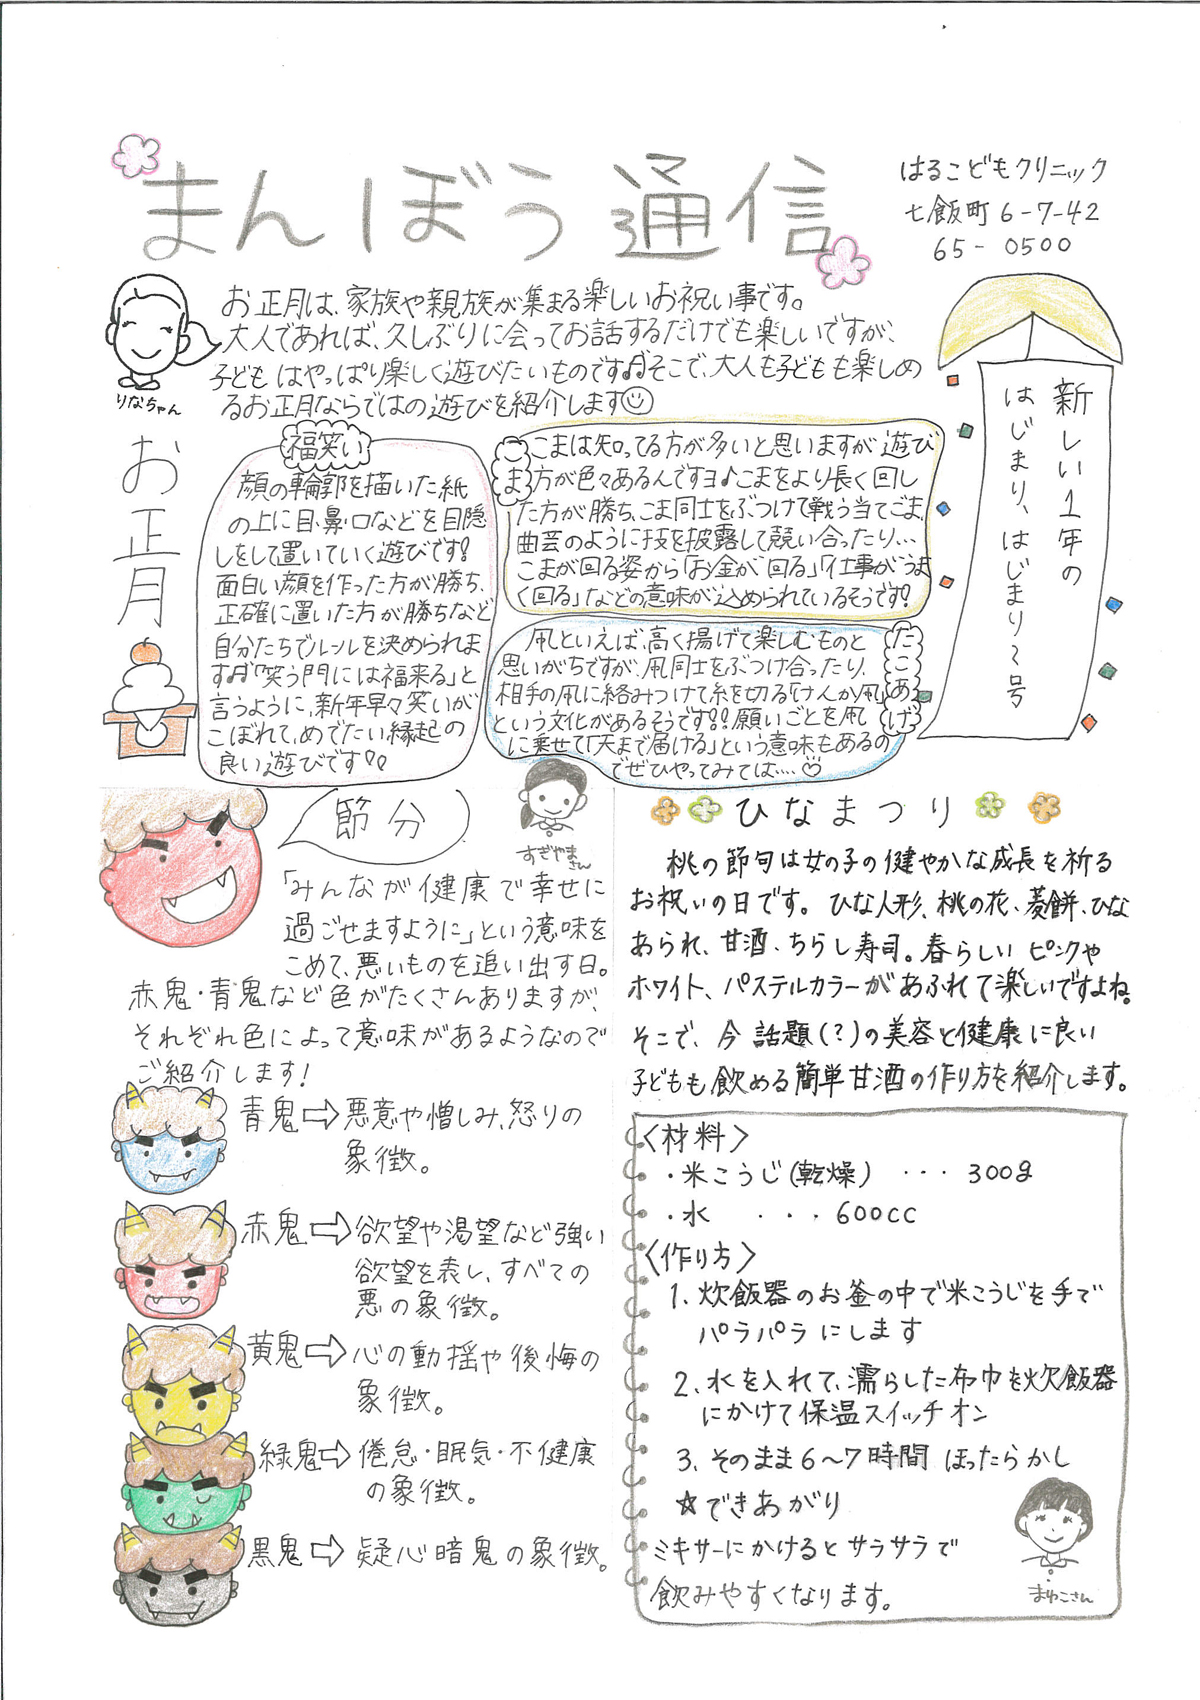 まんぼう通信
はるこどもクリニック
七飯町6-7-42
65-0500
お正月は、家族や親族が集まる楽しいお祝い事です。
大人であれば、久しぶりに会ってお話するだけでも楽しいですが、
子どもはやっぱり楽しく遊びたいものです♬そこで、大人も子どもも楽しめ
るお正月ならではの遊びを紹介します☺
りなちゃん
新しい1年の
はじまり、はじまり〜号
お正月
福笑い
顔の輪郭を描いた紙
の上に目・鼻・口などを目隠
しをして置いていく遊びです!
面白い顔を作った方が勝ち、
正確に置いた方が勝ちなど
自分たちでルールを決められま
す♬「笑う門には福来る」と
言うように、新年早々笑いが
こぼれて、めでたい縁起の
良い遊びです!!
こま
こまは知ってる方が多いと思いますが遊び
方が色々あるんですヨ♪こまをより長く回し
た方が勝ち、こま同士をぶつけて戦う当てごま、
曲芸のように技を披露して競い合ったり…
こまが回る姿から「お金が回る」「仕事がうま
く回る」などの意味が込められているそうです!
たこあげ
凧といえば、高く揚げて楽しむものと
思いがちですが、凧同士をぶつけ合ったり、
相手の凧に絡みつけて糸を切る「けんか凧」
という文化があるそうです!!願いごとを凧
に乗せて「天まで届ける」という意味もあるの
でぜひやってみては....♡
節分
すぎやまさん
「みんなが健康で幸せに
過ごせますように」という意味を
こめて、悪いものを追い出す日。
赤鬼・青鬼など色がたくさんありますが、
それぞれ色によって意味があるようなので
ご紹介します!
青鬼⇨悪意や憎しみ、怒りの
象徴。
赤鬼⇨欲望や渇望など強い
欲望を表し、すべての
悪の象徴。
黄鬼⇨心の動揺や後悔の
象徴。
緑鬼⇨倦怠・眠気・不健康
の象徴。
黒鬼⇨疑心暗鬼の象徴。
ひなまつり
桃の節句は女の子の健やかな成長を祈る
お祝いの日です。ひな人形、桃の花、菱餅、ひな
あられ、甘酒、ちらし寿司。春らしいピンクや
ホワイト、パステルカラーがあふれて楽しいですよね。
そこで、今話題(?)の美容と健康に良い
子どもも飲める簡単甘酒の作り方を紹介します。
〈材料〉
・米こうじ(乾燥) ・・・300g
・水 ・・・600cc
〈作り方〉
1、炊飯器のお釜の中で米こうじを手で
パラパラにします
2、水を入れて、濡らした布巾を炊飯器
にかけて保温スイッチオン
3、そのまま6〜7時間ほったらかし
☆できあがり
ミキサーにかけるとサラサラで
飲みやすくなります。
まゆこさん